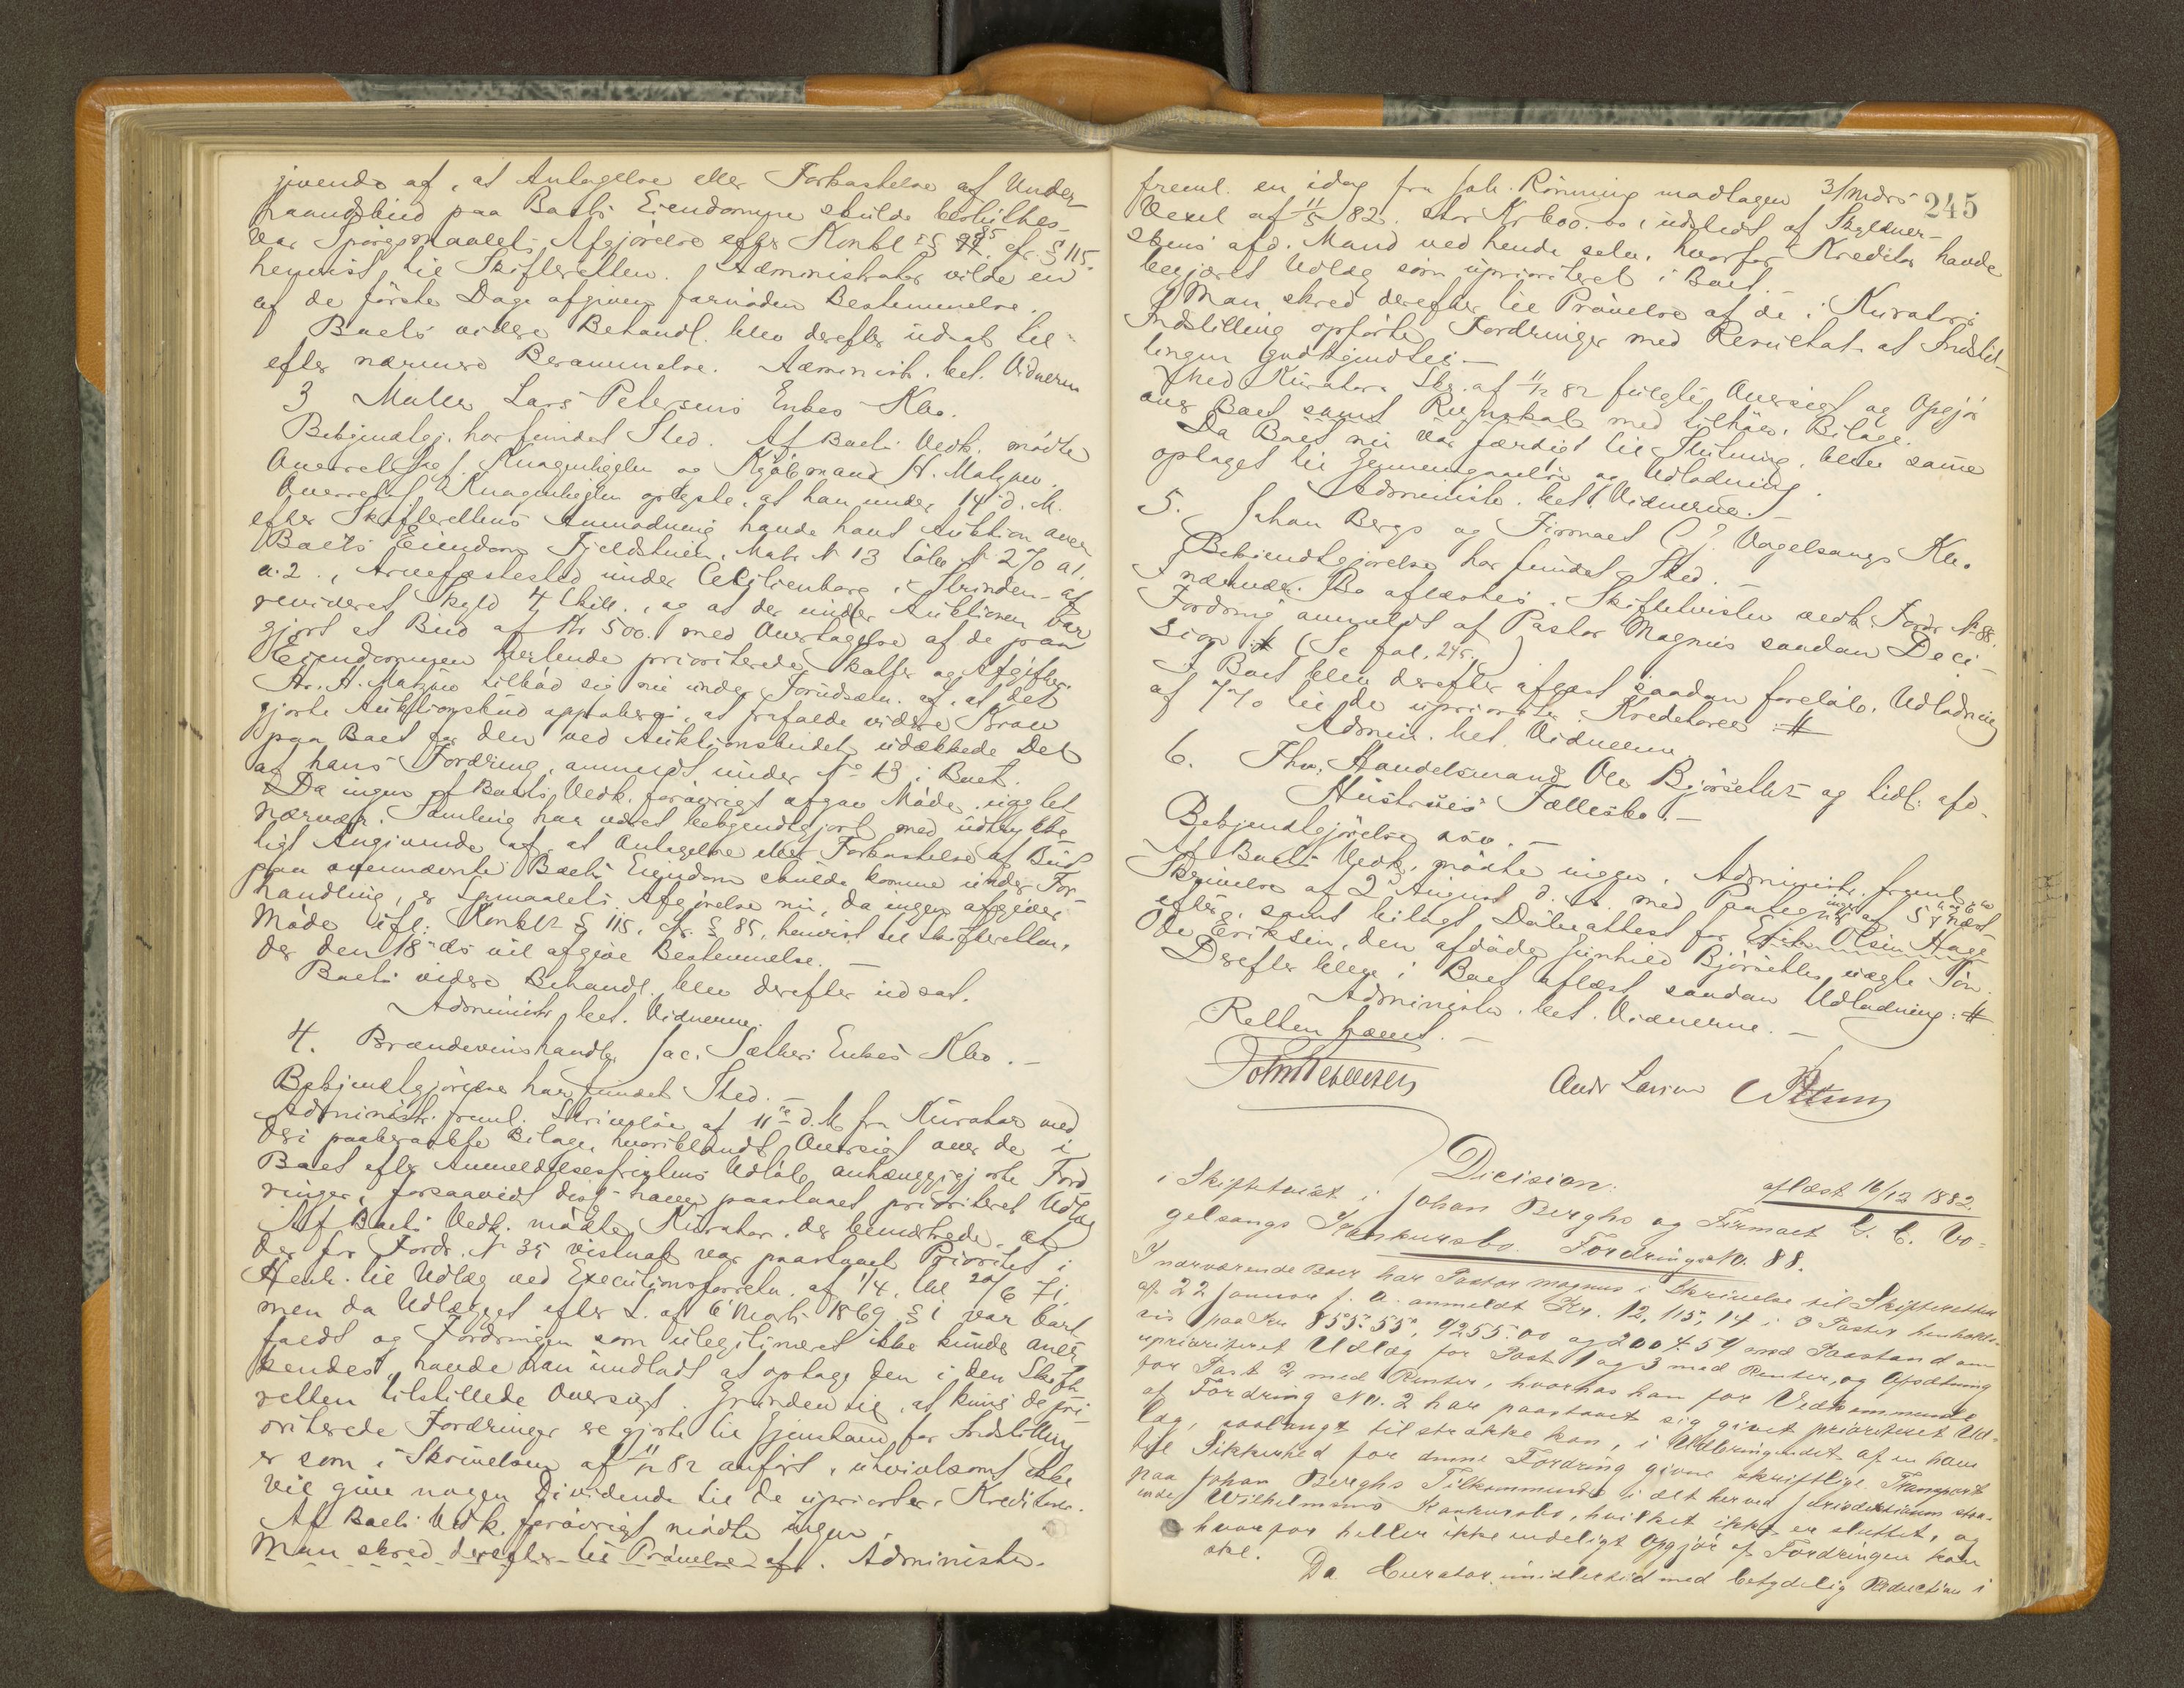 givende af, at Antagelse eller Forkastelse af Under-
haandsbud paa Boets Eiendomme skulde
var Spörgsmaalets Afgjörelse efter Konkl §§ 85 cfr. § 115.
henvist til Skifteretten. Administrator vilde en
af de förste Dage afgiven fornöden Bestemmelse.
Boets videre Behandl. blev derefter udsat til
efter nærmere Berammelse. Administ. bet. Vidnerne
3 Maler Lars Petersens Enkes Kbo.
Bekjendtgj. har fundet Sted. Af Boets Vedk. mödte
Overretssagf. Knagenhjelm og Kjöbmand H. Matzow.
Overretssagf. Knagenhjelm oplyste, at han under 14de d. M.
efter Skifterettens Anmodning havde havt Auktion over
Boets Eiendom Fjeldstuen, Matr. N 13 Löbe N 270 a1.
a.2., Arvefæstested under Cecilienborg i Strinden - af
revideret Skyld 4 Skill., og at der under Auktionen var
gjort et Bud af Kr 500. med Overtagelse af de paa
Eiendommen heftende prioriterede Skatter og Afgifter.
Hr. H. Matzow tilböd sig nu under Forudsætn. af, at det
gjorte Auktionsbud approberes, at frafalde videre Krav
paa Boet for den ved Auktionsbudet udækkede Del
af hans Fordring, anmeldt under No 13 i Boet.
Da ingen af Boets Vedk. forövrigt afgav Möde, uagtet
nærvær. Samling har været bekjendtgjort med udtrykke-
ligt Angivende af, at Antagelse eller Forkastelse af Bud
paa ovennævnte Boets Eiendom skulde komme under For-
handling, er Spmaalets Afgjörelse nu, da ingen afgiver
Möde ifl. Konkl § 115, cfr. § 85, henvist til Skifteretten,
der den 18de ds vil afgive Bestemmelse. —
Boets videre Behandl. blev derefter udsat.
Administr. bet. Vidnerne.
4. Brændevinshandler Jac. Sæthers Enkes Kbo. —
Bekjendtgjörelse har fundet Sted. —
Administr. freml. Skrivelse af 11te d. M fra Kurator med
deri paaberaabte Bilage, hvoriblandt Oversigt over de i
Boet efter Anmeldelsesfristens Udlöb anhængiggjorte Ford
ringer, forsaavidt disse have paastaaet prioriteret Udlæg
Af Boets Vedk. mödte Kurator, der bemærkede, at
der for Fordr. N 35 vistnok var paastaaet Prioritet i
Henh. til Udlæg ved Executionsforretn. af 1/4, 20/6 71.
men da Udlægget efter L. af 6 Marts 1869 § 1 var bort
faldt og Fordringen som ulegitimeret ikke kunde aner
kendes, havde han undladt at optage den i den Skifte
retten tilstillede Oversigt. Grunden til, at kuns de pri-
oriterede Fordringer er gjort til Gjenstand for Indstilling
er som i Skrivelsen af 11/12 82 anfört, utvivlsomt ikke
vil give nogen Dividende til de upriorter. Kreditorer.
Af Boets Vedk. forövrigt mödte ingen.
Man skred derefter til Prövelse af. Administr.
245
freml. en idag fra Joh. Rönning modtagen 3/Mdrs
Vexel af 11/5 82. stor Kr 600.00, udstedt af Skyldner-
skens afd. Mand ved hende selv, hvorfor Kreditor havde
begjæret Udlæg som uprioriteret i Boet. —
Man skred derefter til Prövelse af de i Kurators
Indstilling opförte Fordringer med Resultat at Indstil-
lingen godkjendtes. —
Med Kurators Skr. af 11/12 82 fulgte Oversigt og Opgjör
over Boet samt Regnskab med tilhör. Bilage.
Da Boet nu var færdigt til Slutning, blev samme
optaget til Gjennemgaaelse og Udlodning.
Administr. bet. Vidnerne. —
5. Johan Bergs og Firmaet C. J. Vogelsangs Kbo.
Bekjendtgjörelse har fundet Sted. —
I nærvær. Bo aflæstes i Skiftetvisten vedk. Fordr. N. 88.
Fordring anmeldt af Pastor Magnus saadan Deci-
sion: # (Se fol. 245.)
I Boet blev derefter afgast saadan foreløb. Udlodning
af 7% til de upriorite. Kreditorer: #
Admin. bet. Vidnerne.
6. Fhv. Handelsmand Ole Björseth og tidl. afd.
Hustrues Fællesbo. —
Bekjendtgjörelse
Af Boets Vedk. mödte ingen. Administr. freml.
Skrivelse af 2 August d. A. med Paategninger af 5
efter, samt bilagt Döbeattest for Erik Olsen Hage
Ole Eriksen, den afdöde Björseths uægte Sön.
Derefter blev i Boet aflæst saadan Udlodning: #
Administr. bet. Vidnerne. —
Retten hævet. —
Andr Larsen
Dicision:
aflæst 16/12 1882.
i Skiftetvist i Johan Berghs og Firmaet C. C. Vo-
gelsangs Konkursbo. Fordringer No. 88.
I nærværende Boer har Pastor Magnus i Skrivelse til Skifteretten
af 22 Januar f. A. anmeldt Kr. 12,115,14 i 3 Poster henholds-
vis paa Kr 855.55, 9255.00 og 2004.59 med Paastand om
uprioriteret Udlæg for Post 1 og 3 med Renter, og Afsætning
for Post 2 med Renter, hvorhos han for Vedkommende
af Fordring No. 2 har paastaaet sig givet prioriteret Ud-
læg, saalangt tilstrække kan, i Udbringendet af en ham
til Sikkerhed for denne Fordring given skriftlige Transport
paa Johan Berghs Tilkommende i det herved Jurisdiktionen sva-
ende Wilhelmsens Konkursbo, hvilket ikke er sluttet, og
hvorfor heller ikke endeligt Opgjör af Fordringen kan
ske.
Da Curator imidlertid med betydelig Reduction i